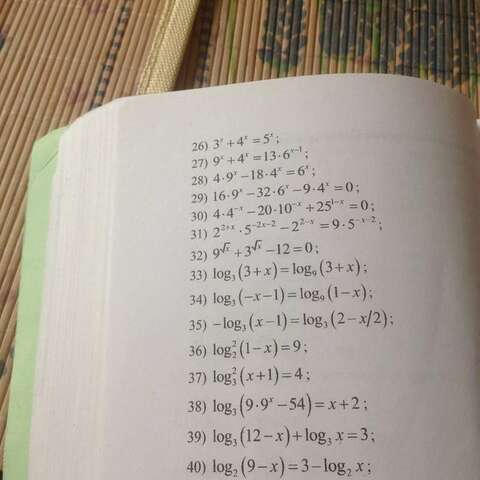 26) 3ˣ + 4ˣ = 5ˣ;
27) 9ˣ + 4ˣ = 13·6ˣ⁻¹;
28) 4·9ˣ − 18·4ˣ = 6ˣ;
29) 16·9ˣ − 32·6ˣ − 9·4ˣ = 0;
30) 4·4⁻ˣ − 20·10⁻ˣ + 25¹⁻ˣ = 0;
31) 2²⁺ˣ·5⁻²ˣ⁻² − 2²⁻ˣ = 9·5⁻ˣ⁻²;
32) 9^√x + 3^√x − 12 = 0;
33) log₃(3 + x) = log₉(3 + x);
34) log₃(−x − 1) = log₉(1 − x);
35) −log₃(x − 1) = log₃(2 − x/2);
36) log₂²(1 − x) = 9;
37) log₃²(x + 1) = 4;
38) log₃(9·9ˣ − 54) = x + 2;
39) log₃(12 − x) + log₃ x = 3;
40) log₂(9 − x) = 3 − log₂ x;